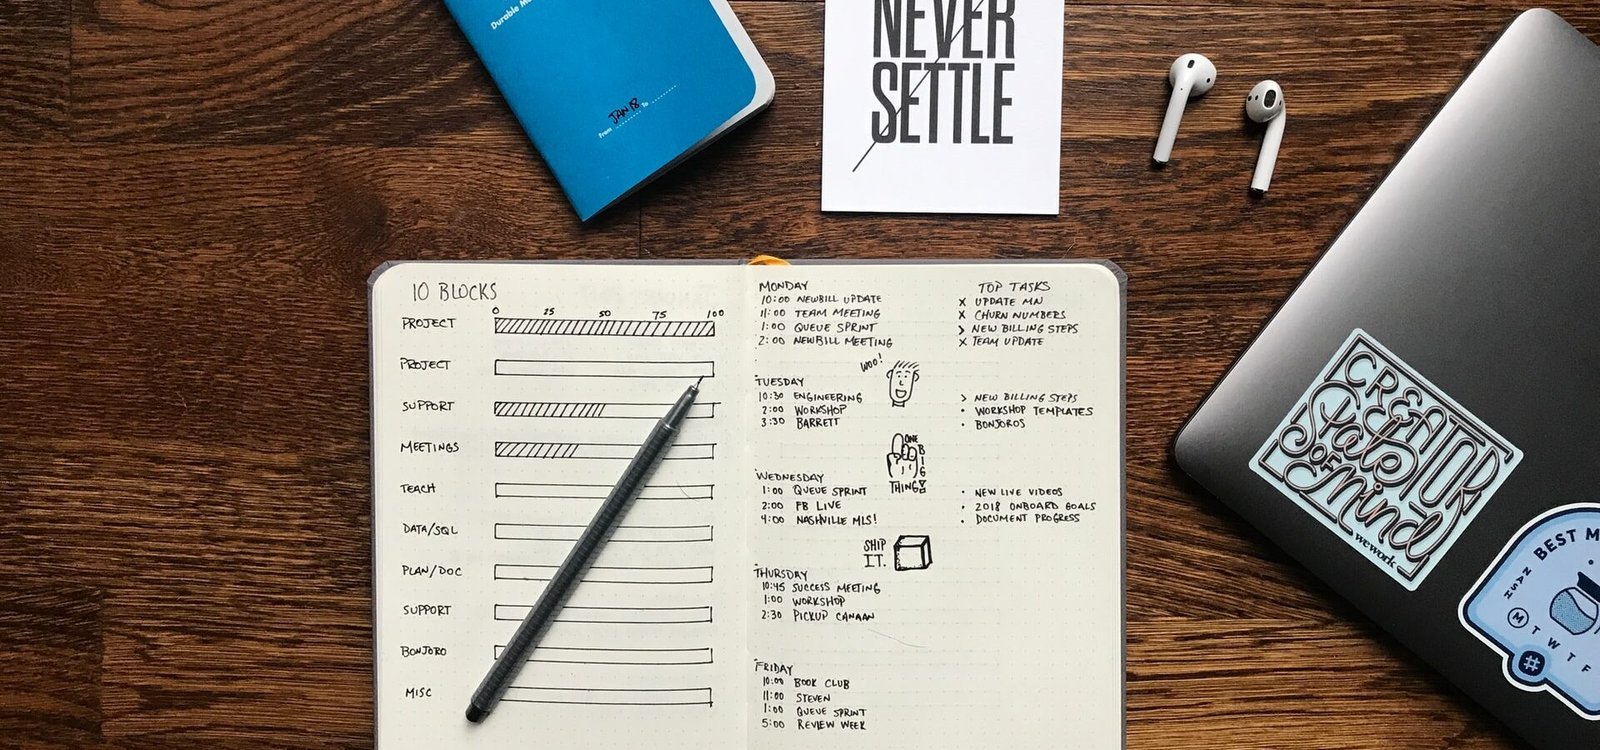 Durable
JAN 18
From To
NEVER
SETTLE
10 BLOCKS
0 25 50 75 100
PROJECT
PROJECT
SUPPORT
MEETINGS
TEACH
DATA/SQL
PLAN/DOC
SUPPORT
BONJORO
MISC
MONDAY
10:00 NEWBILL UPDATE
11:00 TEAM MEETING
1:00 QUEUE SPRINT
2:00 NEWBILL MEETING
TOP TASKS
X UPDATE MN
X CHURN NUMBERS
> NEW BILLING STEPS
X TEAM UPDATE
WOO!
TUESDAY
10:30 ENGINEERING
2:00 WORKSHOP
3:30 BARRETT
> NEW BILLING STEPS
• WORKSHOP TEMPLATES
• BONJOROS
ONE
BIG
THING!
WEDNESDAY
1:00 QUEUE SPRINT
2:00 FB LIVE
4:00 NASHVILLE MLS!
• NEW LIVE VIDEOS
• 2018 ONBOARD GOALS
• DOCUMENT PROGRESS
SHIP
IT.
THURSDAY
10:45 SUCCESS MEETING
1:00 WORKSHOP
2:30 PICKUP CANAAN
FRIDAY
10:00 BOOK CLUB
11:00 STEVEN
1:00 QUEUE SPRINT
5:00 REVIEW WEEK
CREATOR
State
OF
Mind
wework
BEST M
NASH
M T W T F
#